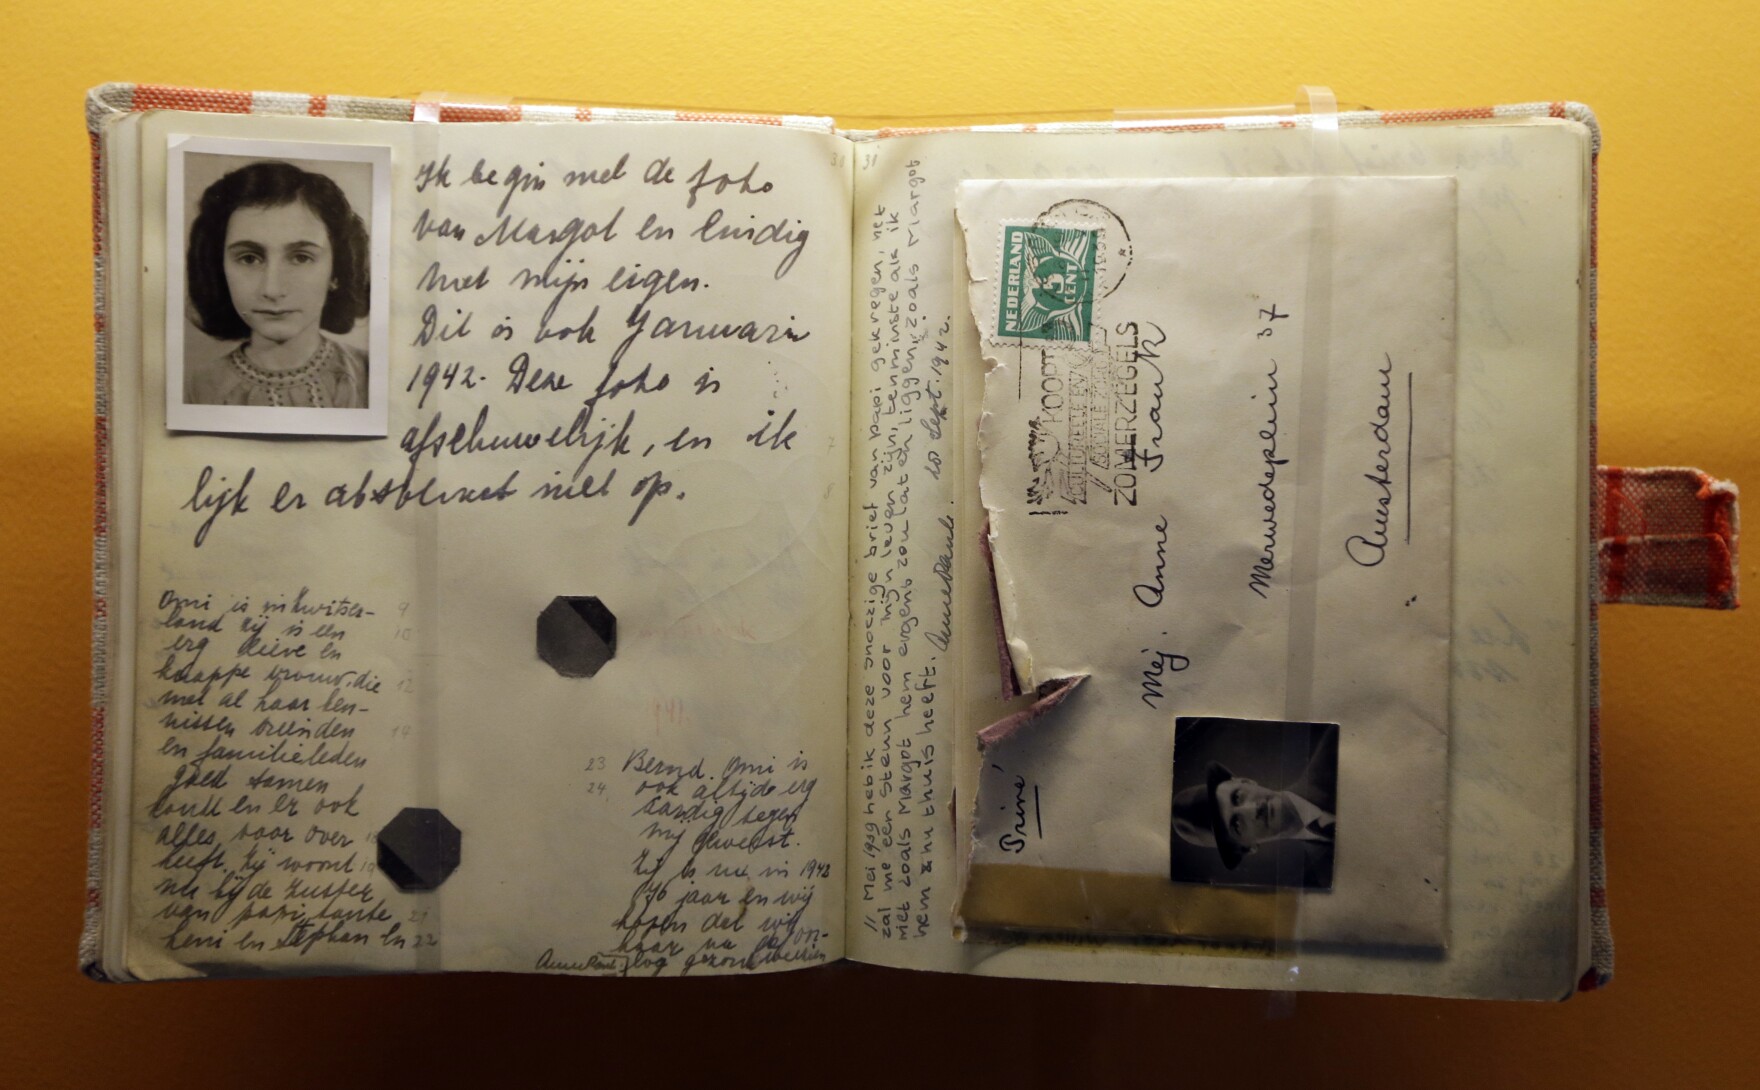 Ik begin met de foto
van Margot en eindig
met mijn eigen.
Dit is ook Januari
1942. Deze foto is
afschuwelijk, en ik
lijk er absoluut niet op.
Omi is in Zwitser-
land zij is een
erg lieve en
knappe vrouw, die
met al haar ken-
nissen vrienden
en familieleden
goed samen
kond en er ook
alles voor over
heeft. Zij woont
nu bij de zuster
van papi, tante
Leni en Stephan en
9
10
12
14
18
19
21
22
1942
23 Bernd. Omi is
24 ook altijd erg
aardig tegen
mij geweest.
Zij is nu in 1942
76 jaar en wij
hopen dat wij
haar na de oor-
log gezond weerzien
Anne Frank.
30
31
11 Mei 1939 heb ik deze snoezige brief van papi gekregen, het
zal me een steun voor mijn leven zijn, tenminste als ik
niet zoals Margot hem ergens zou laten liggen, zoals Margot
hem thuis heeft. Anne Frank. 28 Sept. 1942.
NEDERLAND
5
CENT
KOOPT
CULTUREELE EN
SOCIALE ZORG
ZOMERZEGELS
Mej. Anne Frank
Merwedeplein 37
Amsterdam
Privé